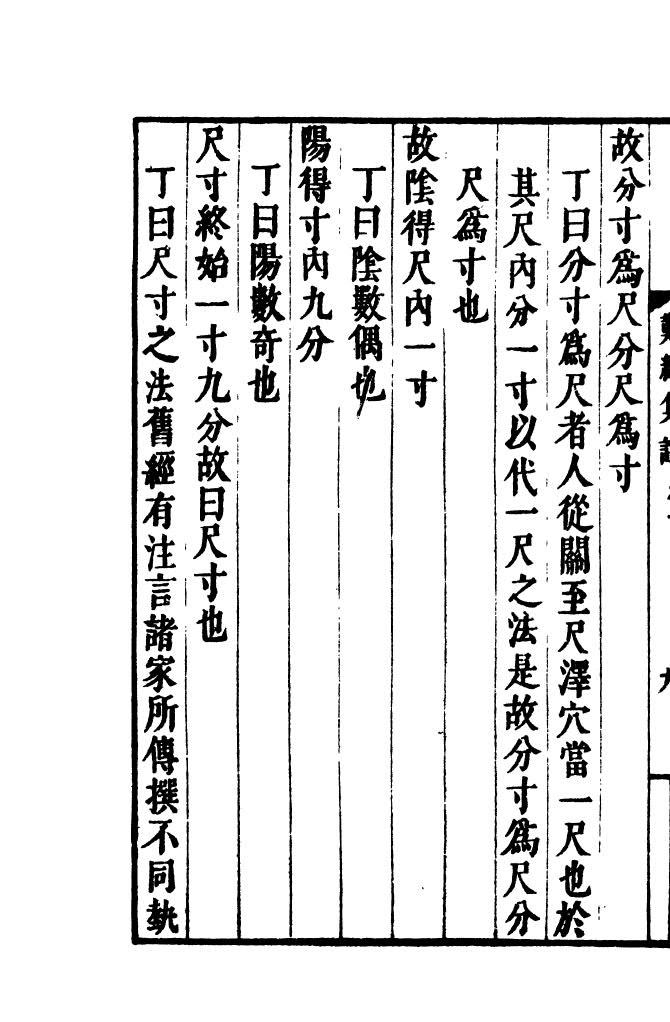 故分寸爲尺分尺爲寸
丁曰分寸爲尺者人從關至尺澤穴當一尺也於
其尺內分一寸以代一尺之法是故分寸爲尺分
尺爲寸也
故陰得尺內一寸
丁曰陰數偶也
陽得寸內九分
丁曰陽數奇也
尺寸終始一寸九分故曰尺寸也
丁曰尺寸之法舊經有注言諸家所傳撰不同執